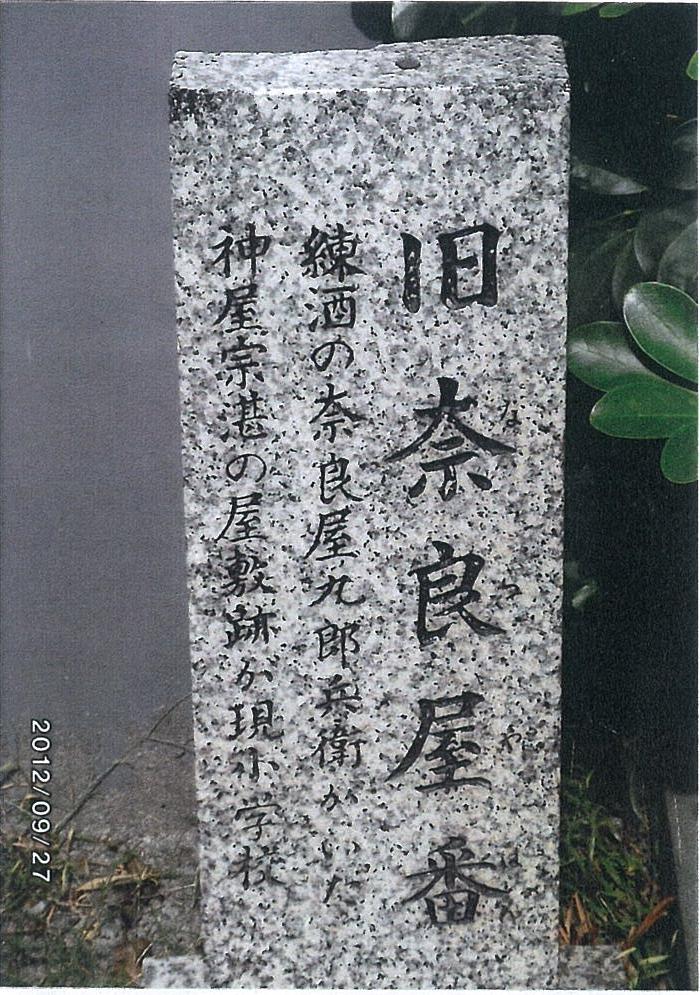 旧奈良屋番
練酒の奈良屋九郎兵衛がいた
神屋宗湛の屋敷跡が現小学校
2012/09/27